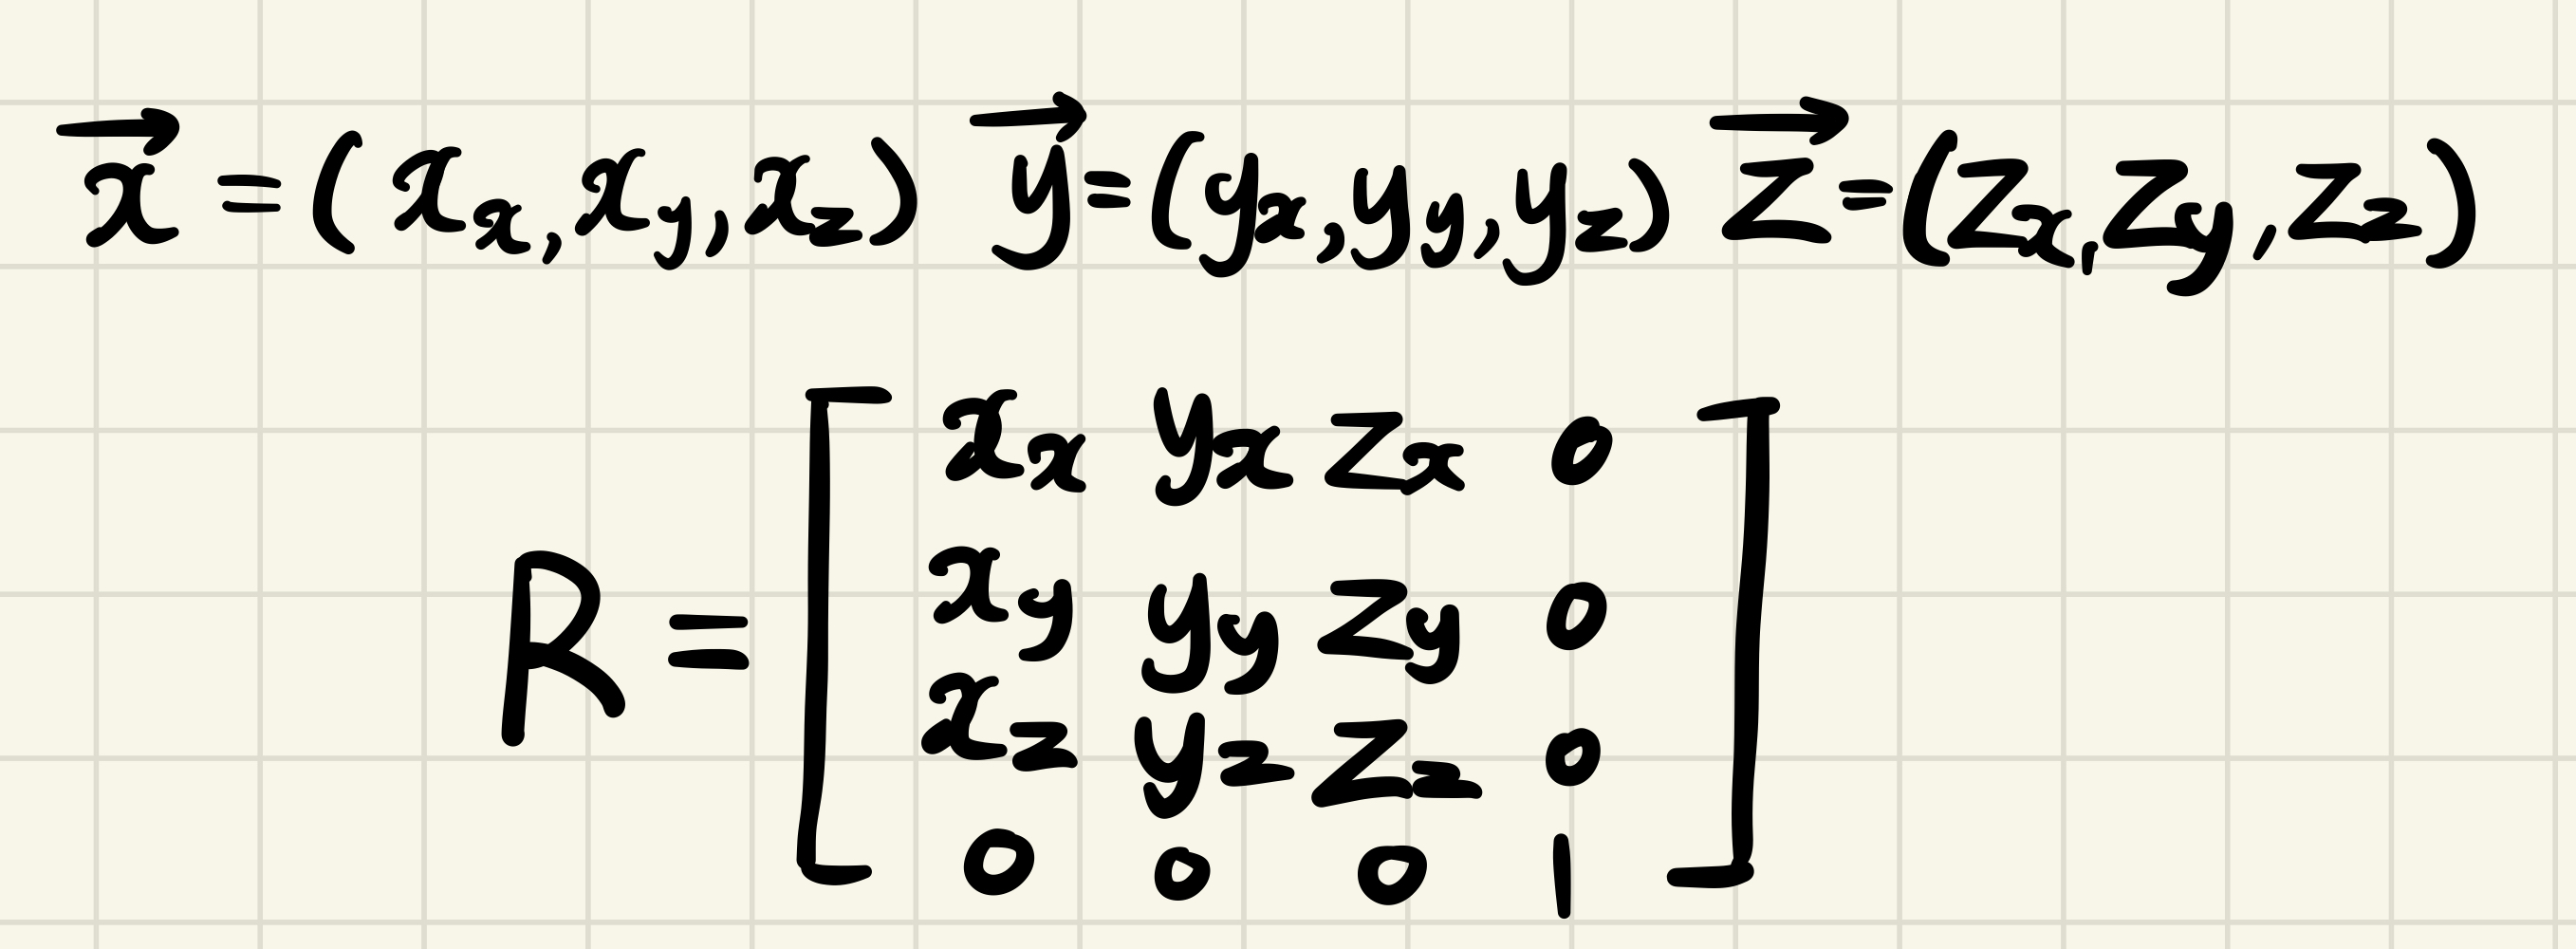 $\vec{x} = (x_x, x_y, x_z)$ $\vec{y} = (y_x, y_y, y_z)$ $\vec{z} = (z_x, z_y, z_z)$
$R = \begin{bmatrix} x_x & y_x & z_x & 0 \\ x_y & y_y & z_y & 0 \\ x_z & y_z & z_z & 0 \\ 0 & 0 & 0 & 1 \end{bmatrix}$